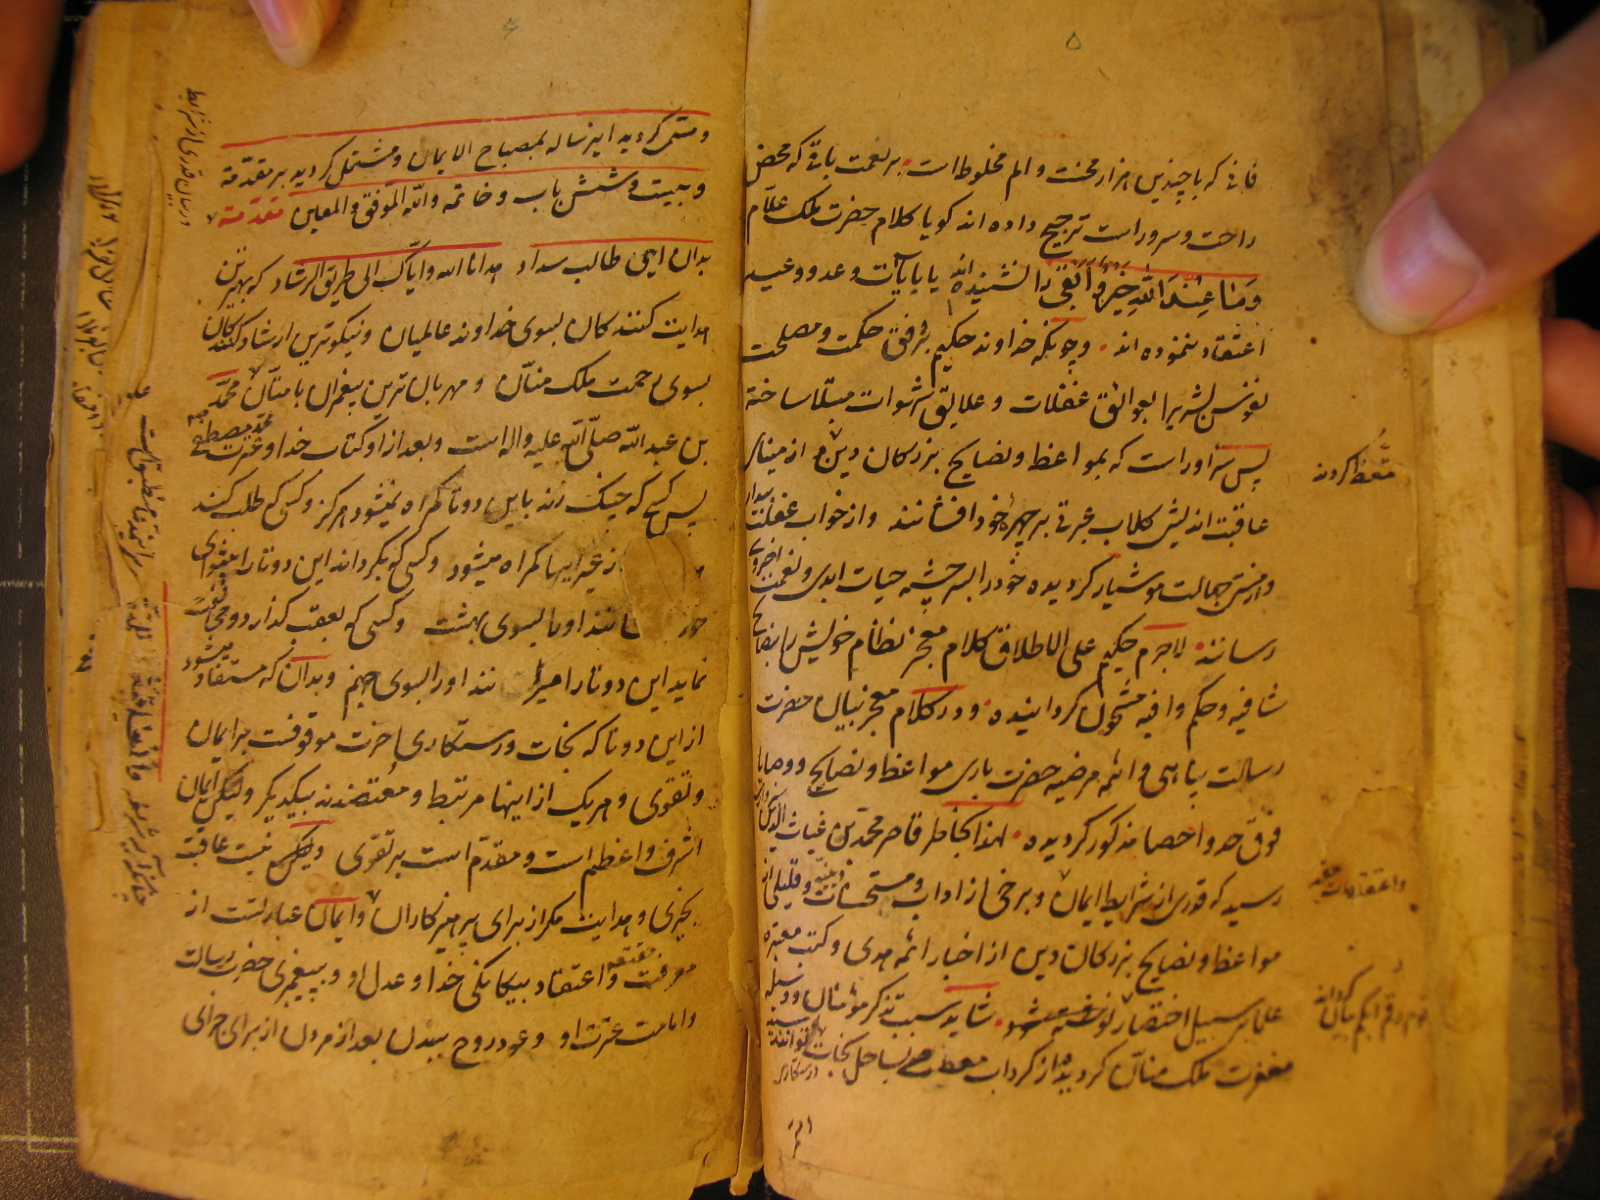 ۵
فانی که با چندین هزار محنت و الم مخلوط است بر نعمت باقی که محض
راحت و سرور است ترجیح داده اند کویا کلام حضرت ملک علّام
وَمَا عِنْدَ اللّهِ خَیرٌ وَاَبْقی را نشنیده اند یا بایات وعد و وعید
اعتقاد ننموده اند و چونکه خداوند حکیم بر وفق حکمت و مصلحت
نفوس بشریرا بعوائق غفلات و علایق شهوات مبتلا ساخته
پس سزاوار است که بمواعظ و نصایح بزرکان دین از مینای
عاقبت اندیش کلاب عبرتی بر چهره خود افشانند و از خواب غفلت بیدار
و از مستی جهالت هوشیار کردیده خود را بسرچشمه حیات ابدی و نعمت اخروی
رسانند لاجرم حکیم علی الاطلاق کلام معجز نظام خویش را بنصایح
شافیه و حکم وافیه مشحون کردانیده و در کلام معجز بیان حضرت
رسالت پناهی و ائمه مرضیه حضرت باری مواعظ و نصایح و وصایا
فوق حد و احصا مذکور کردیده لهذا بخاطر قاصر محمد بن غیاث الدین
رسید که قدری از شرایط ایمان و برخی از اداب و مستحبات دینیّه و قلیلی از
مواعظ و نصایح بزرکان دین از اخبار ائمه هدی و کتب معتبره
علما بر سبیل اختصار نوشته شود شاید سبب تذکر مؤمنان و وسیله
مغفرت ملک منّان کردیده از کرداب معصیت بساحل نجات
رستکاری
متّعظ کردند
و اعتقادات حقه
۶
و مسمّی کردید این رساله بمصباح الایمان و مشتمل کردید بر مقدّمة
و بیست و شش باب و خاتمه والله الموفق والمعین مقدّمة
بدان ایهی طالب سداد هدانا الله وایّاک الی طریق الرشاد که بهترین
هدایت کنندکان بسوی خداوند عالمیان و نیکوترین ارشاد کنندکان
بسوی رحمت ملک منّان و مهربان ترین پیغمران با منّان محمّد
بن عبد الله صلّی الله علیه واله است و بعد از او کتاب خدا و عترت محمد مصطفی
پس کسی که چنک زند باین دو تا کمراه نمیشود هرکز و کسی که طلب کند
از غیر اینها کمراه میشود و کسی که بکرداند این دو تا را پیشوای
خود میرسانند او را بسوی بهشت و کسی که بعقب کذارد و مخالفت
نماید این دو تا را میرانند او را بسوی جهنم و بدان که مستفاد میشود
از این دو تا که نجات و رستکاری اخرت موقوفست بر ایمان
و تقوی و هر یک از اینها مرتبط و معتضدند بیکدیکر و لیکن ایمان
اشرف و اعظم است و مقدّم است بر تقوی و نیست عاقبت
بخیری و هدایت مکر از برای پرهیزکاران و ایمان عبارتست از
معرفت و اعتقاد بیکانکی خدا و عدل او و پیغمری حضرت رسالت
و امامت عترت او و عود روح ببدن بعد از مردن از برای جزای
در بیان قدری از شرایط